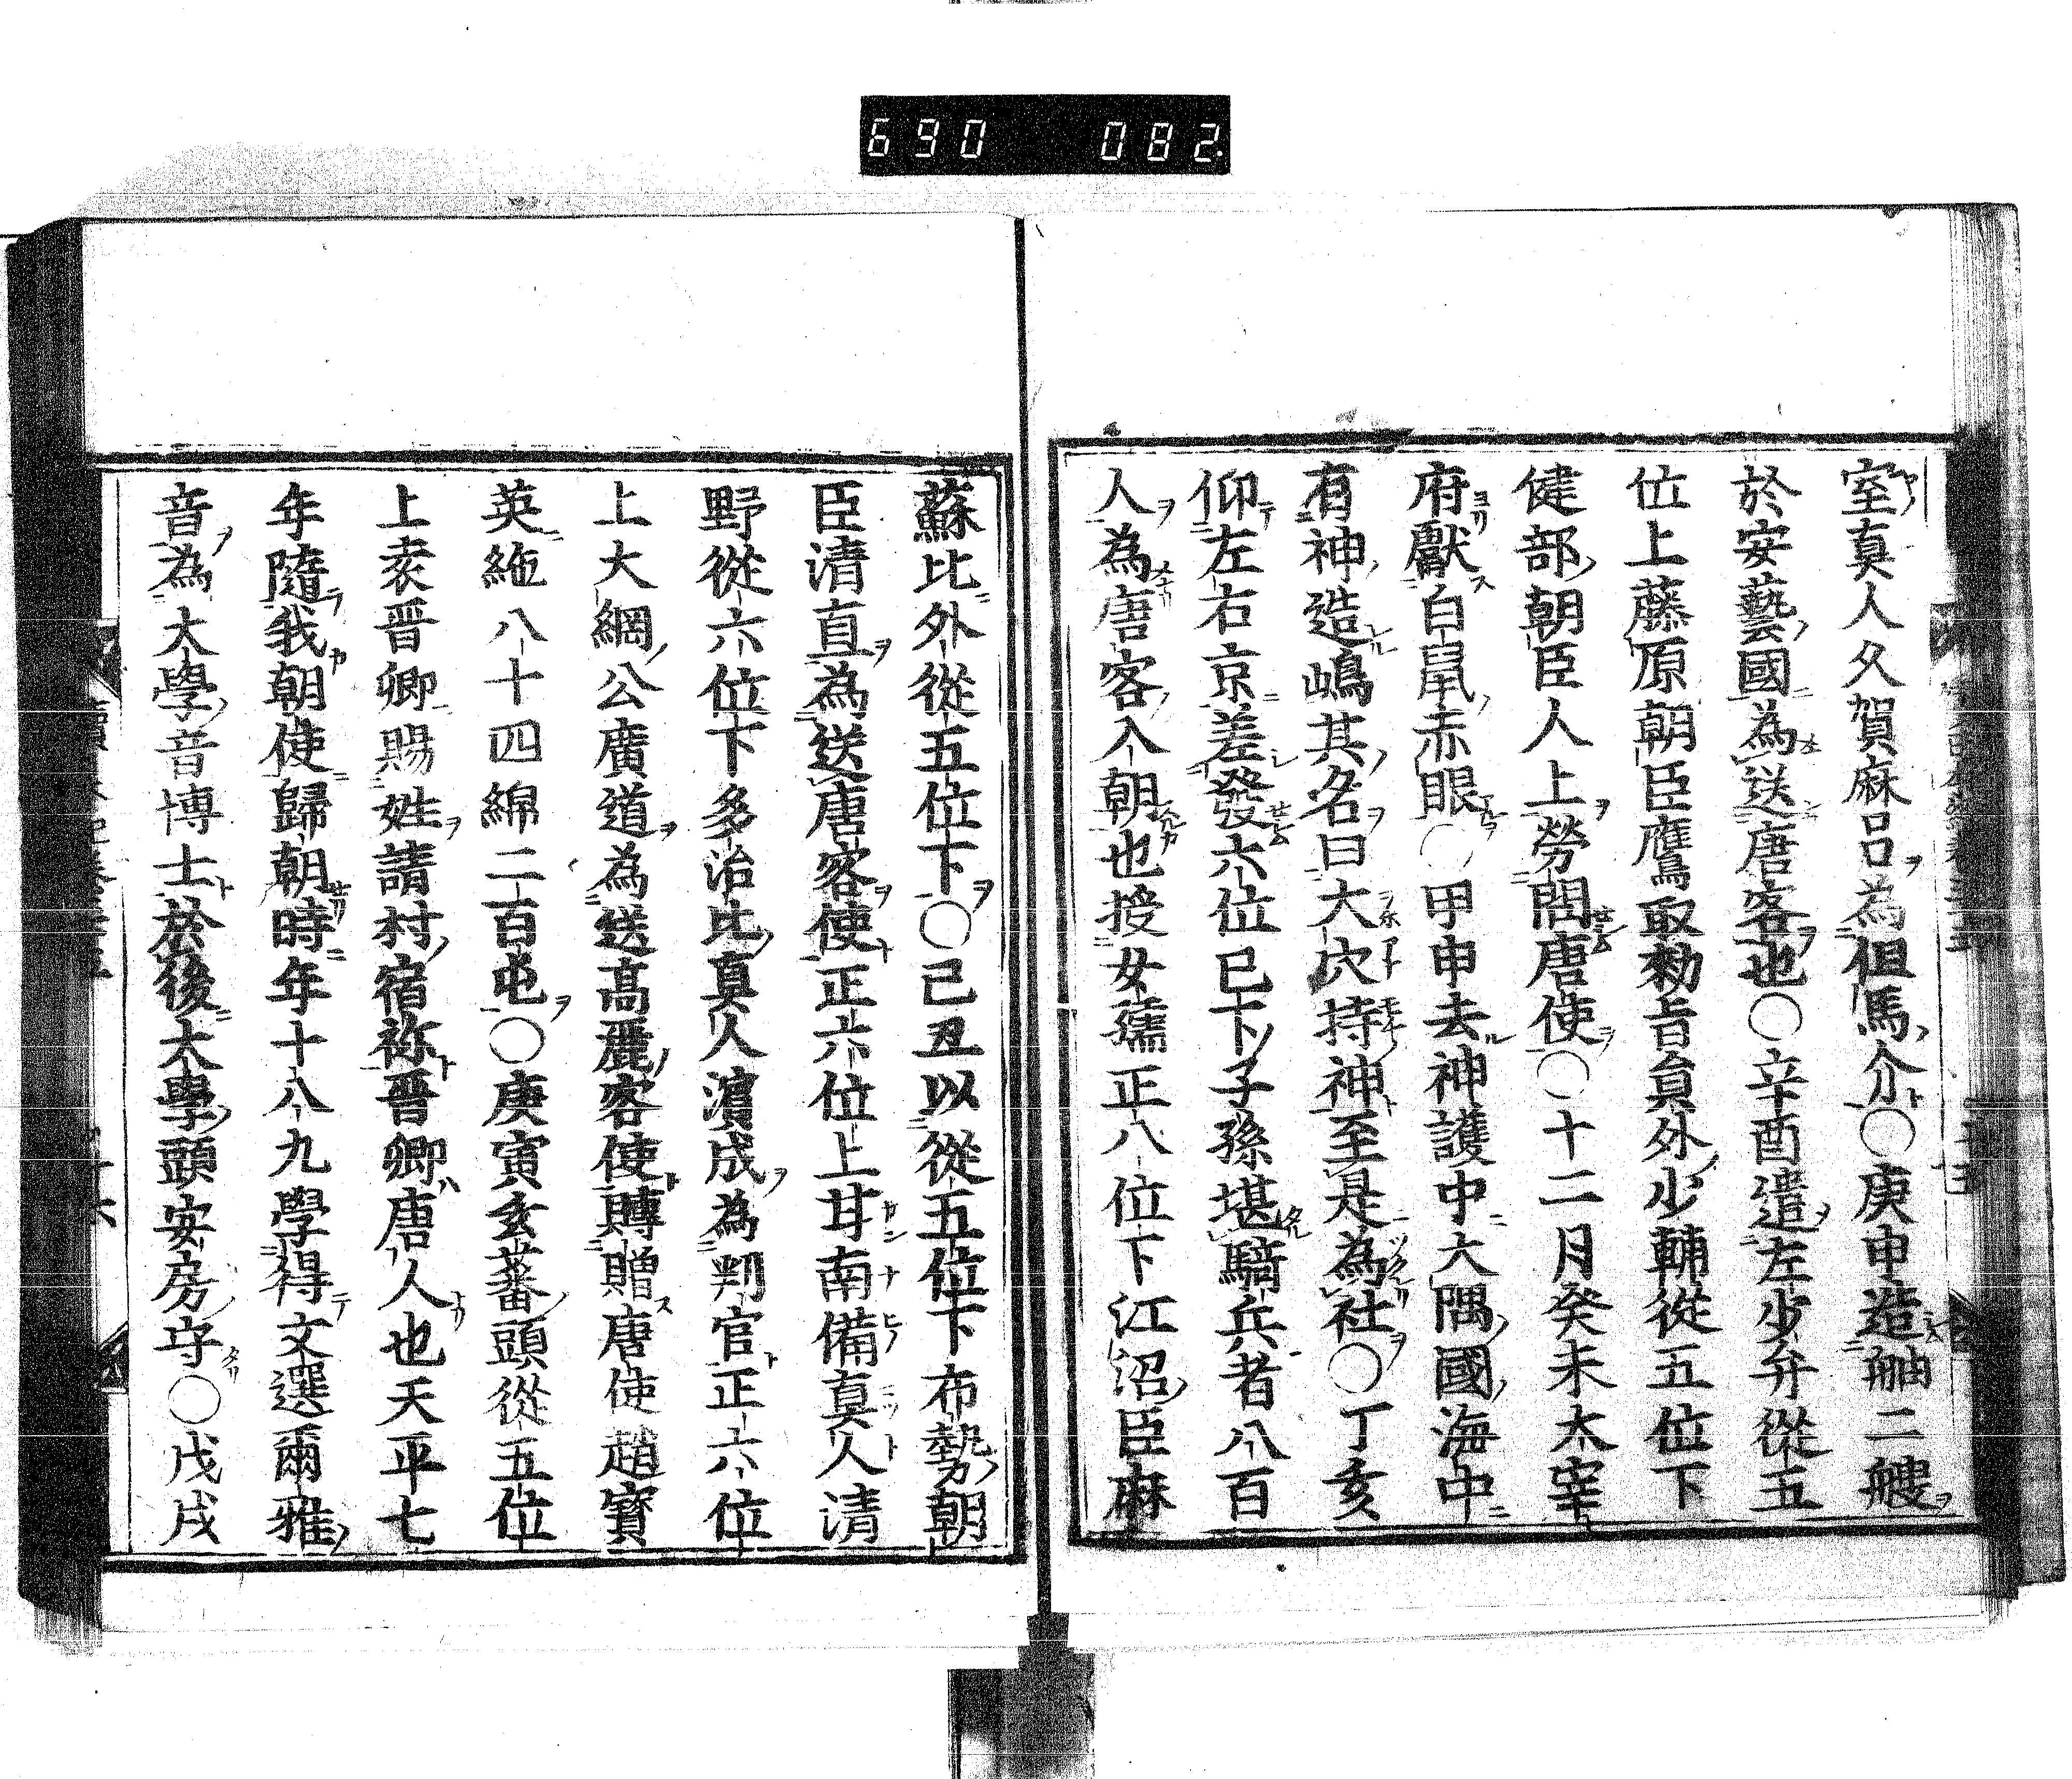 690 082
室真人久賀麻呂為但馬介○庚申造舳二艘
於安藝國為送唐客也○辛酉遣左少弁從五
位上藤原朝臣鷹取勅旨員外少輔從五位下
健部朝臣人上勞問唐使○十二月癸未太宰
府獻白鼠赤眼○甲申去神護中大隅國海中
有神造嶋其名曰大穴持神至是為社○丁亥
仰左右京差發六位已下子孫堪騎兵者八百
人為唐客入朝也授女孺正八位下江沼臣麻
蘇比外從五位下○己丑以從五位下布勢朝
臣清直為送唐客使正六位上甘南備真人清
野從六位下多治比真人濱成為判官正六位
上大網公廣道為送高麗客使贈贈唐使趙寶
英絁八十四綿二百屯○庚寅玄蕃頭從五位
上袁晋卿賜姓請村宿祢晋卿唐人也天平七
年隨我朝使歸朝時年十八九學得文選爾雅
音為大學音博士於後太學頭安房守○戊戌